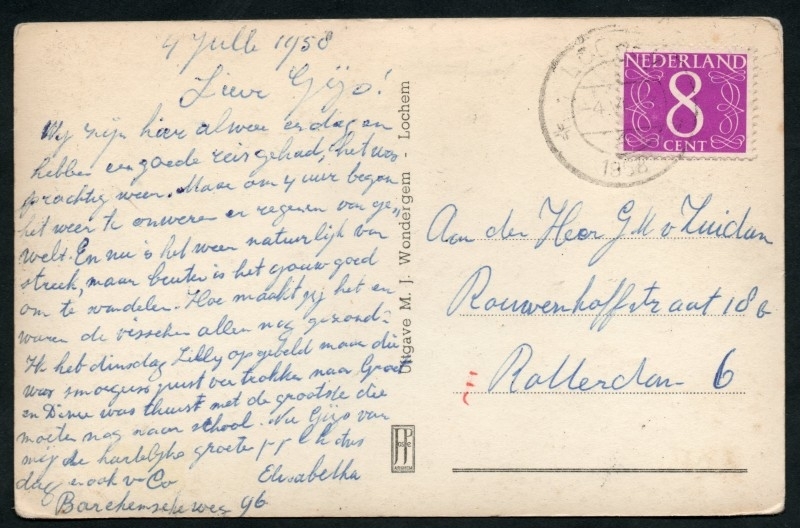 4 Julle 1958
Lieve Gijo!
Wij zijn hier alweer en dag en
hebben een goede reis gehad, het was
prachtig weer. Maar om 4 uur begon
het weer te onweren en regenen van ge„
welt. En nu is het weer natuurlijk van
streek, maar buiten is het gauw goed
om te wandelen. Hoe maakt gij het en
waren de visschen allen nog gezond.
Ik heb dinsdag Lilly opgebeld maar die
was smorgens juist vertrokken naar
en was thuist met de grootste die
moeten nog naar school. Nu Gijo van
mij de hartelijke groete
dag en ook v Co Elisabetha
Barchemseweg 96
Uitgave M. J. Wondergem - Lochem
JosPe
ARNHEM
LOCHEM
1958
NEDERLAND
8
CENT
Aan den Heer G M v Zuidam
Rouwenhoffstraat 18b
Rotterdam 6